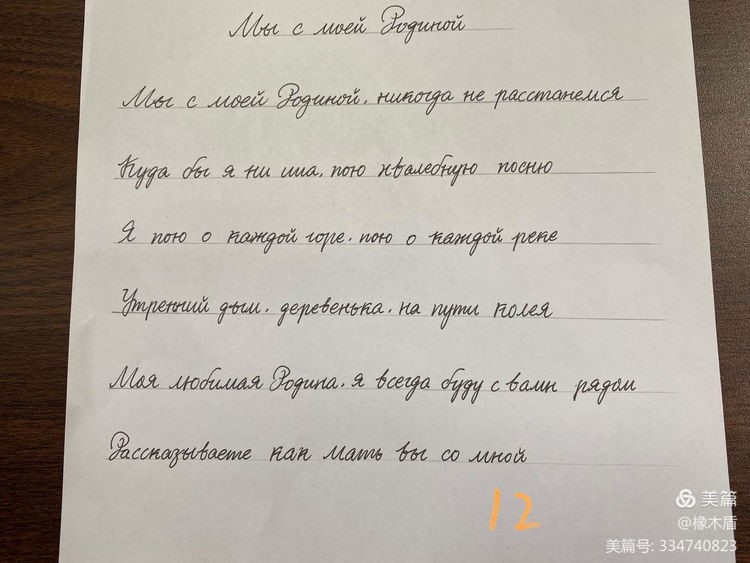 Мы с моей Родиной
Мы с моей Родиной, никогда не расстанемся
Куда бы я ни шла, пою хвалебную посню
Я пою о каждой горе, пою о каждой реке
Утренний дым, деревенька, на пути колея
Моя любимая Родина, я всегда буду с вами рядом
Рассказываете как мать вы со мной
12
美篇
@橡木盾
美篇号: 334740823